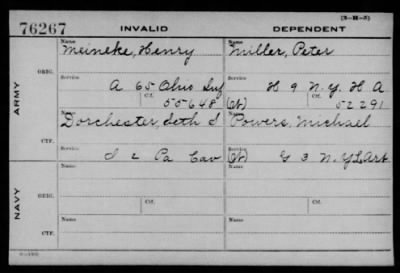 (3-H-5)
76267 INVALID DEPENDENT
Name Name
Meineke, Henry Miller, Peter
ARMY
ORIG. Service Service
A 65 Ohio Inf H 9 N.Y. H A
Ctf. Ctf.
55648 (W) 52291
Name Name
Dorchester, Seth S Powers, Michael
CTF. Service Service
I 2 Pa Cav (W) G 3 N.Y L Art
NAVY
ORIG. Name Name
Service Service
Ctf. Ctf.
Name Name
CTF. Service Service